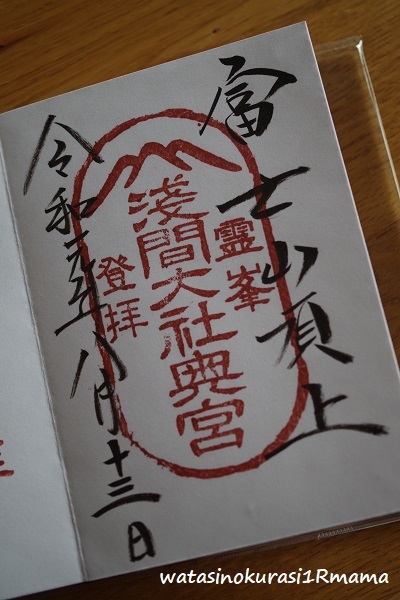 富士山頂上
霊峯
淺間大社奥宮
登拝
令和元年八月十三日
watasinokurasi1Rmama